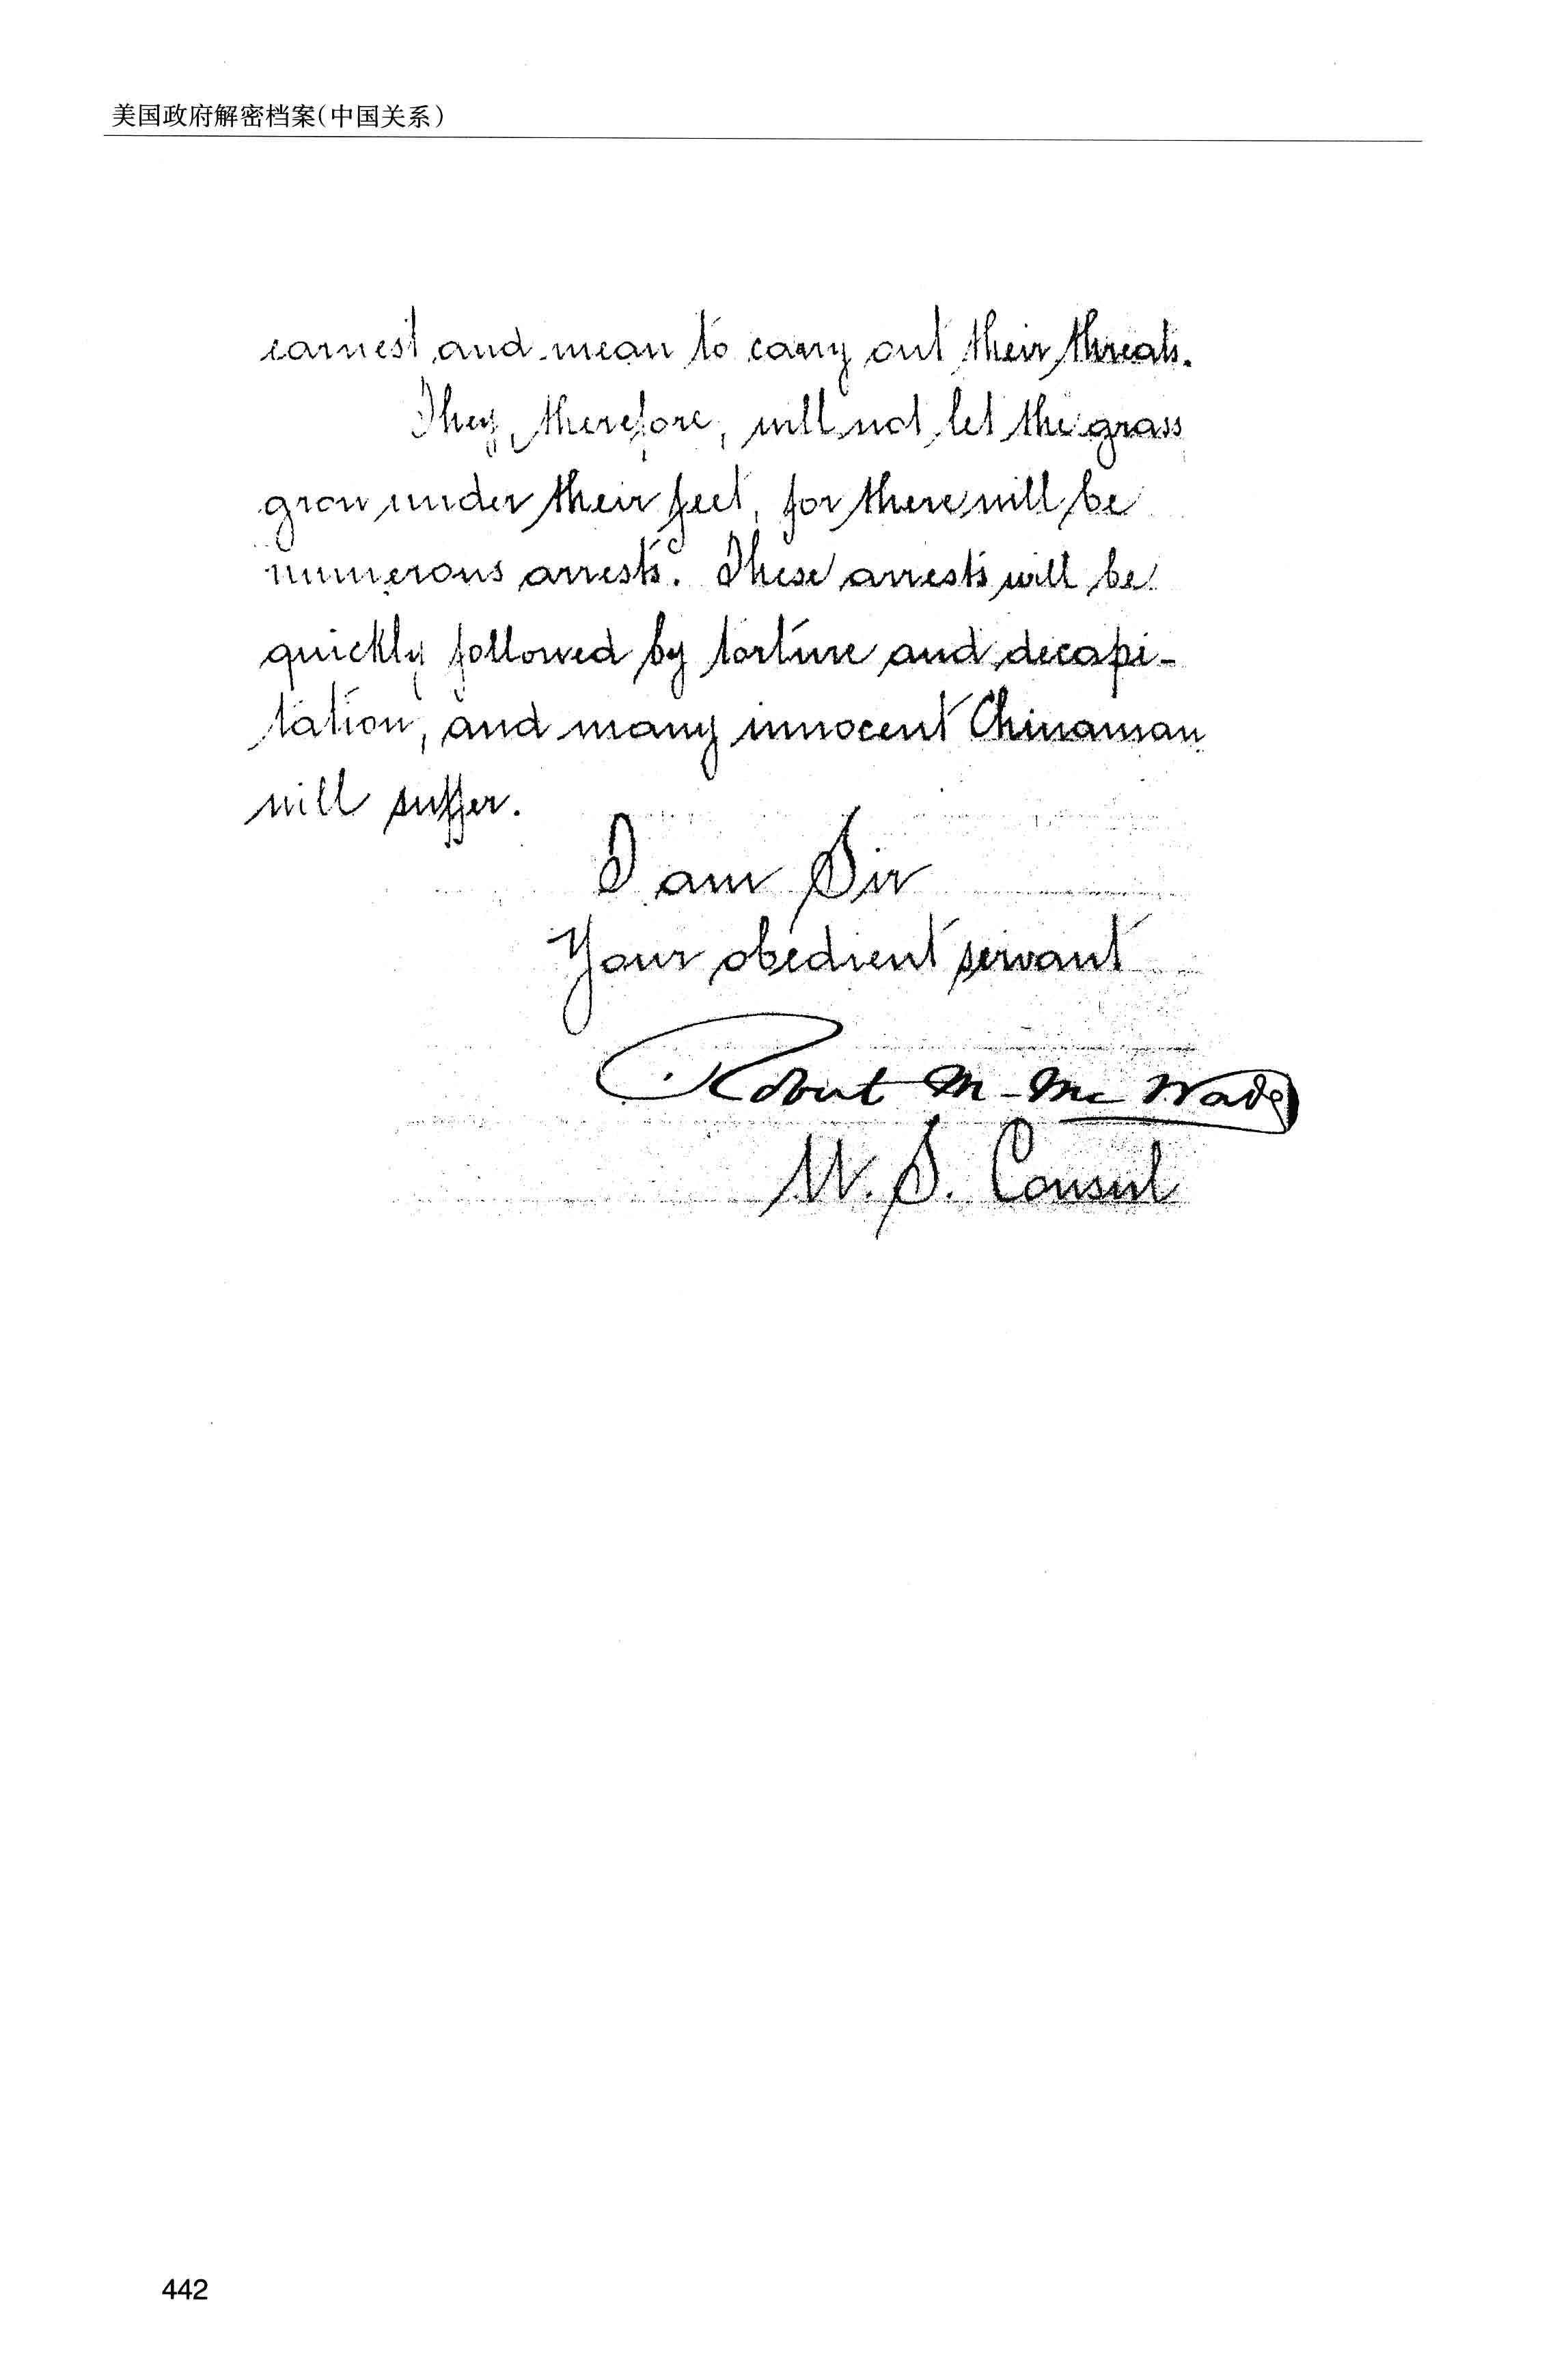 美国政府解密档案(中国关系)
earnest and mean to carry out their threats.
They, therefore, will not let the grass
grow under their feet, for there will be
numerous arrests. These arrests will be
quickly followed by torture and decapi-
tation, and many innocent Chinaman
will suffer.
I am Sir
Your obedient servant
Robert M. McWade
U. S. Consul
442